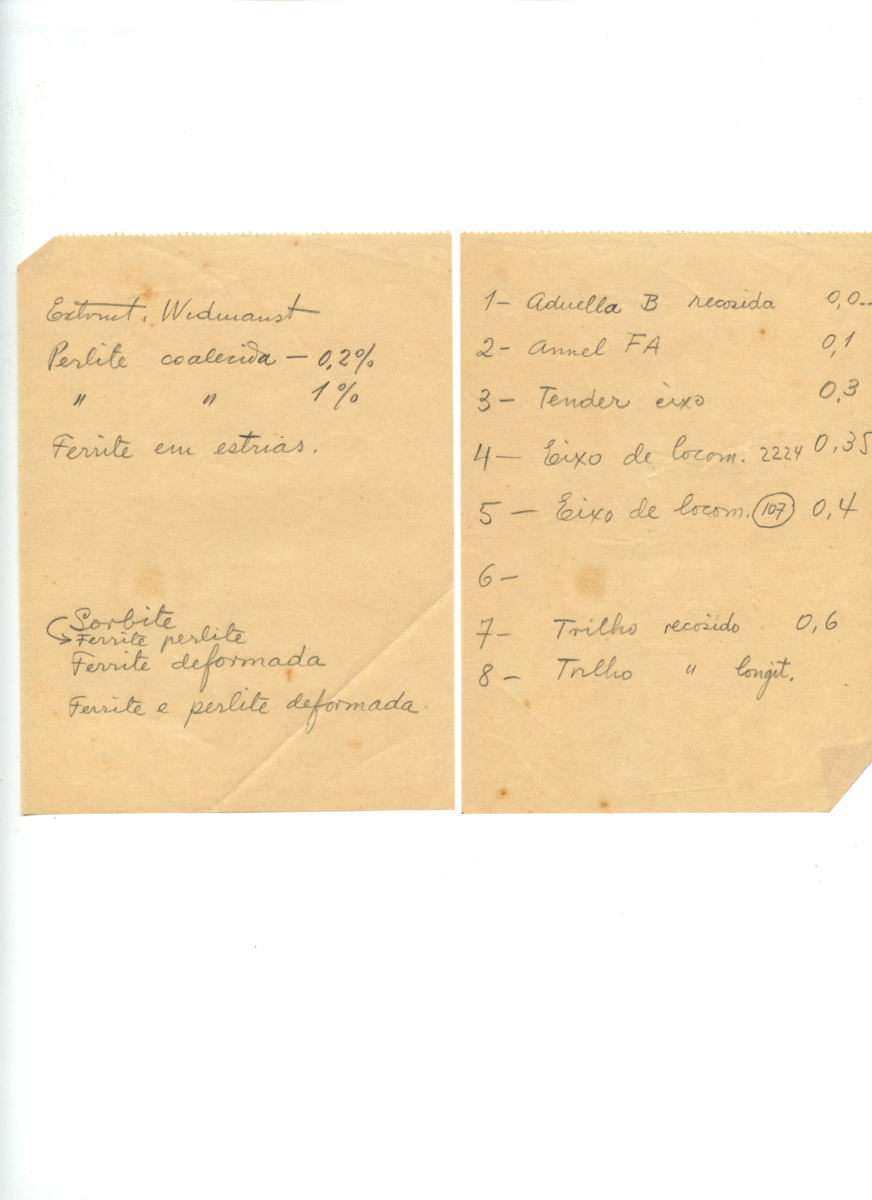 Estruct. Widmanst
Perlite coalecida — 0,2%
" " 1%
Ferrite em estrias.
Sorbite
Ferrite perlite
Ferrite deformada
Ferrite e perlite deformada.
1- Aduella B recosida 0,0..
2- Annel FA 0,1
3- Tender eixo 0,3
4- Eixo de locom. 2224 0,35
5- Eixo de locom. 107 0,4
6-
7- Trilho recosido 0,6
8- Trilho " longit.